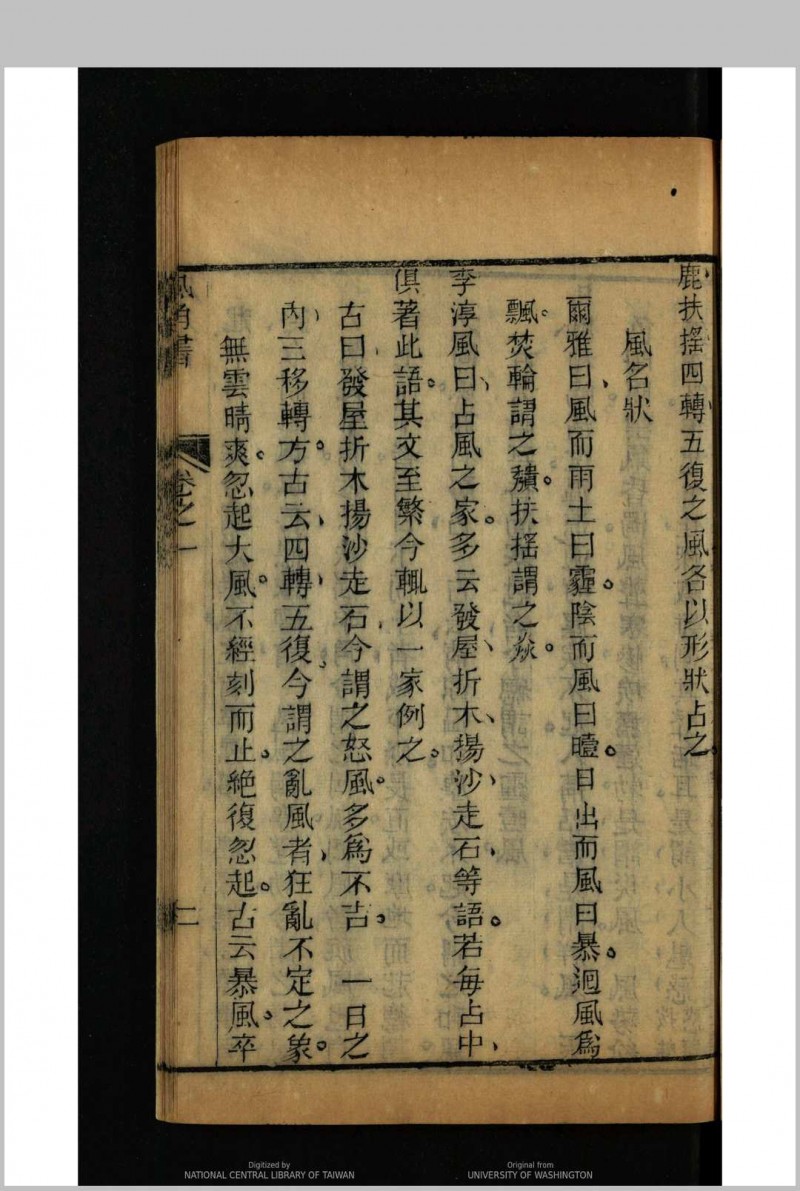 鹿扶摇四轉五復之風各以形狀占之
風名狀
爾雅曰風而雨土曰霾陰而風曰曀日出而風曰暴迴風爲
飄焚輪謂之穨扶摇謂之猋
李淳風曰占風之家多云發屋折木揚沙走石等語若每占中
俱著此語其文至繁今輒以一家例之
古曰發屋折木揚沙走石今謂之怒風多爲不吉 一日之
內三移轉方古云四轉五復今謂之亂風者狂亂不定之象
無雲晴爽忽起大風不經刻而止絶復忽起古云暴風卒
風角書 卷之一 二
Digitized by
NATIONAL CENTRAL LIBRARY OF TAIWAN
Original from
UNIVERSITY OF WASHINGTON